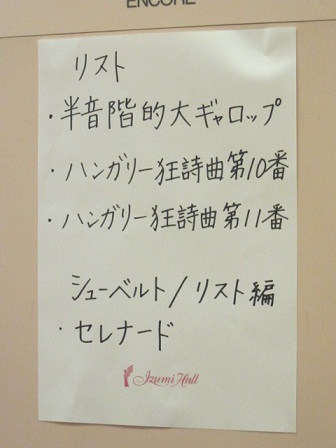 ENCORE
リスト
・半音階的大ギャロップ
・ハンガリー狂詩曲第10番
・ハンガリー狂詩曲第11番
シューベルト/リスト編
・セレナード
Izumi Hall